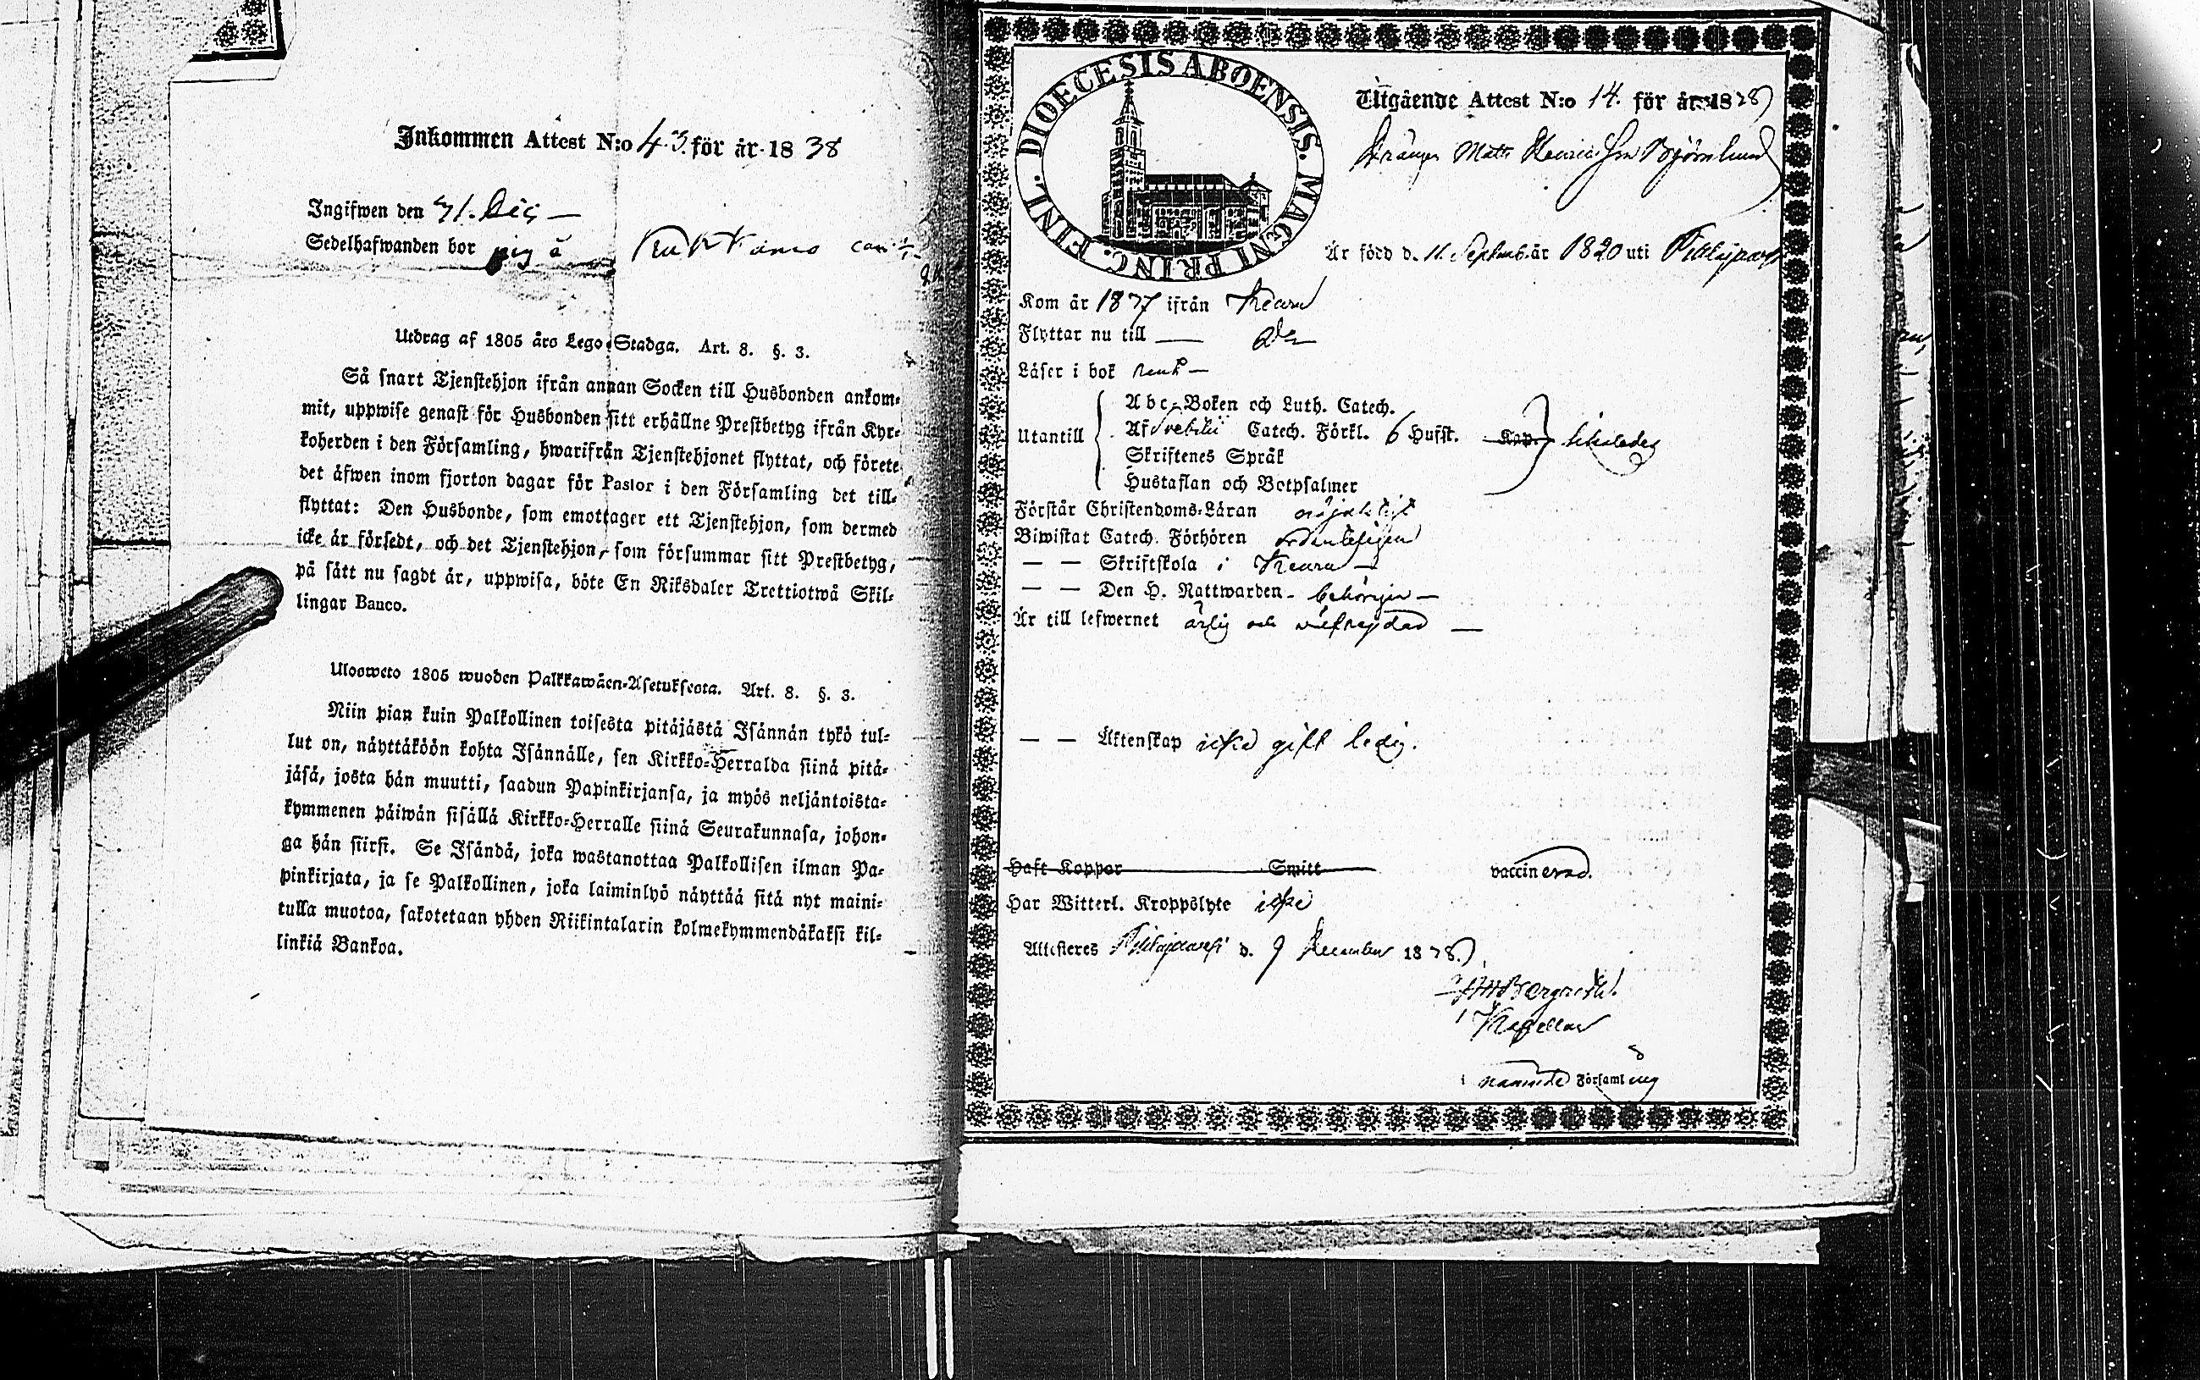 Inkommen Attest N:o 43. för år 1838
Ingifwen den 31. Dec
Sedelhafwanden bor
Utdrag af 1805 års Lego-Stadga. Art. 8. §. 3.
Så snart Tjenstehjon ifrån annan Socken till Husbonden ankom-
mit, uppwise genast för Husbonden sitt erhållne Prestbetyg ifrån Kyr-
koherden i den Församling, hwarifrån Tjenstehjonet flyttat, och förete
det äfwen inom fjorton dagar för Pastor i den Församling det till-
flyttat: Den Husbonde, som emottager ett Tjenstehjon, som dermed
icke är försedt, och det Tjenstehjon, som försummar sitt Prestbetyg,
på sätt nu sagdt är, uppwisa, böte En Riksdaler Trettiotwå Skil-
lingar Banco.
Ulosweto 1805 wuoden Palkkawäen-Asetuksesta. Art. 8. §. 3.
Niin pian kuin Palkollinen toisesta pitäjästä Isännän tykö tul-
lut on, näyttäköön kohta Isännälle, sen Kirkko-Herralda siinä pitä-
jäsä, josta hän muutti, saadun Papinkirjansa, ja myös neljäntoista-
kymmenen päiwän sisällä Kirkko-Herralle siinä Seurakunnasa, johon-
ga hän siirsi. Se Isändä, joka wastanottaa Palkollisen ilman Pa-
pinkirjata, ja se Palkollinen, joka laiminlyö näyttää sitä nyt maini-
tulla muotoa, sakotetaan yhden Riikintalarin kolmekymmendäkaksi kil-
linkiä Bankoa.
DIOECESIS ABOENSIS. MAGNI PRINC. FINL.
Utgående Attest N:o 14. för år 1838
Drängen Matts Henricsson Björnlund
Är född d. 11. Septemb. år 1820 uti
Kom år 1837 ifrån
Flyttar nu till —
Läser i bok rent —
Utantill
Abc-Boken och Luth. Catech.
Af Svebilii Catech. Förkl. 6 Hufst. Kap.
Skriftenes Språk
Hustaflan och Botpsalmer
Förstår Christendoms-Läran nöjaktigt
Biwistat Catech. Förhören ordenteligen
— — Skriftskola i
— — Den H. Nattwarden behörigen —
Är till lefwernet ärlig och wälfrejdad —
— — Äktenskap icke gift ledig.
Haft Koppor Smitt vaccinerad.
Har Witterl. Kroppslyte icke
Attesteras d. 9 December 1838.
Kapellan
i nämnde Församling